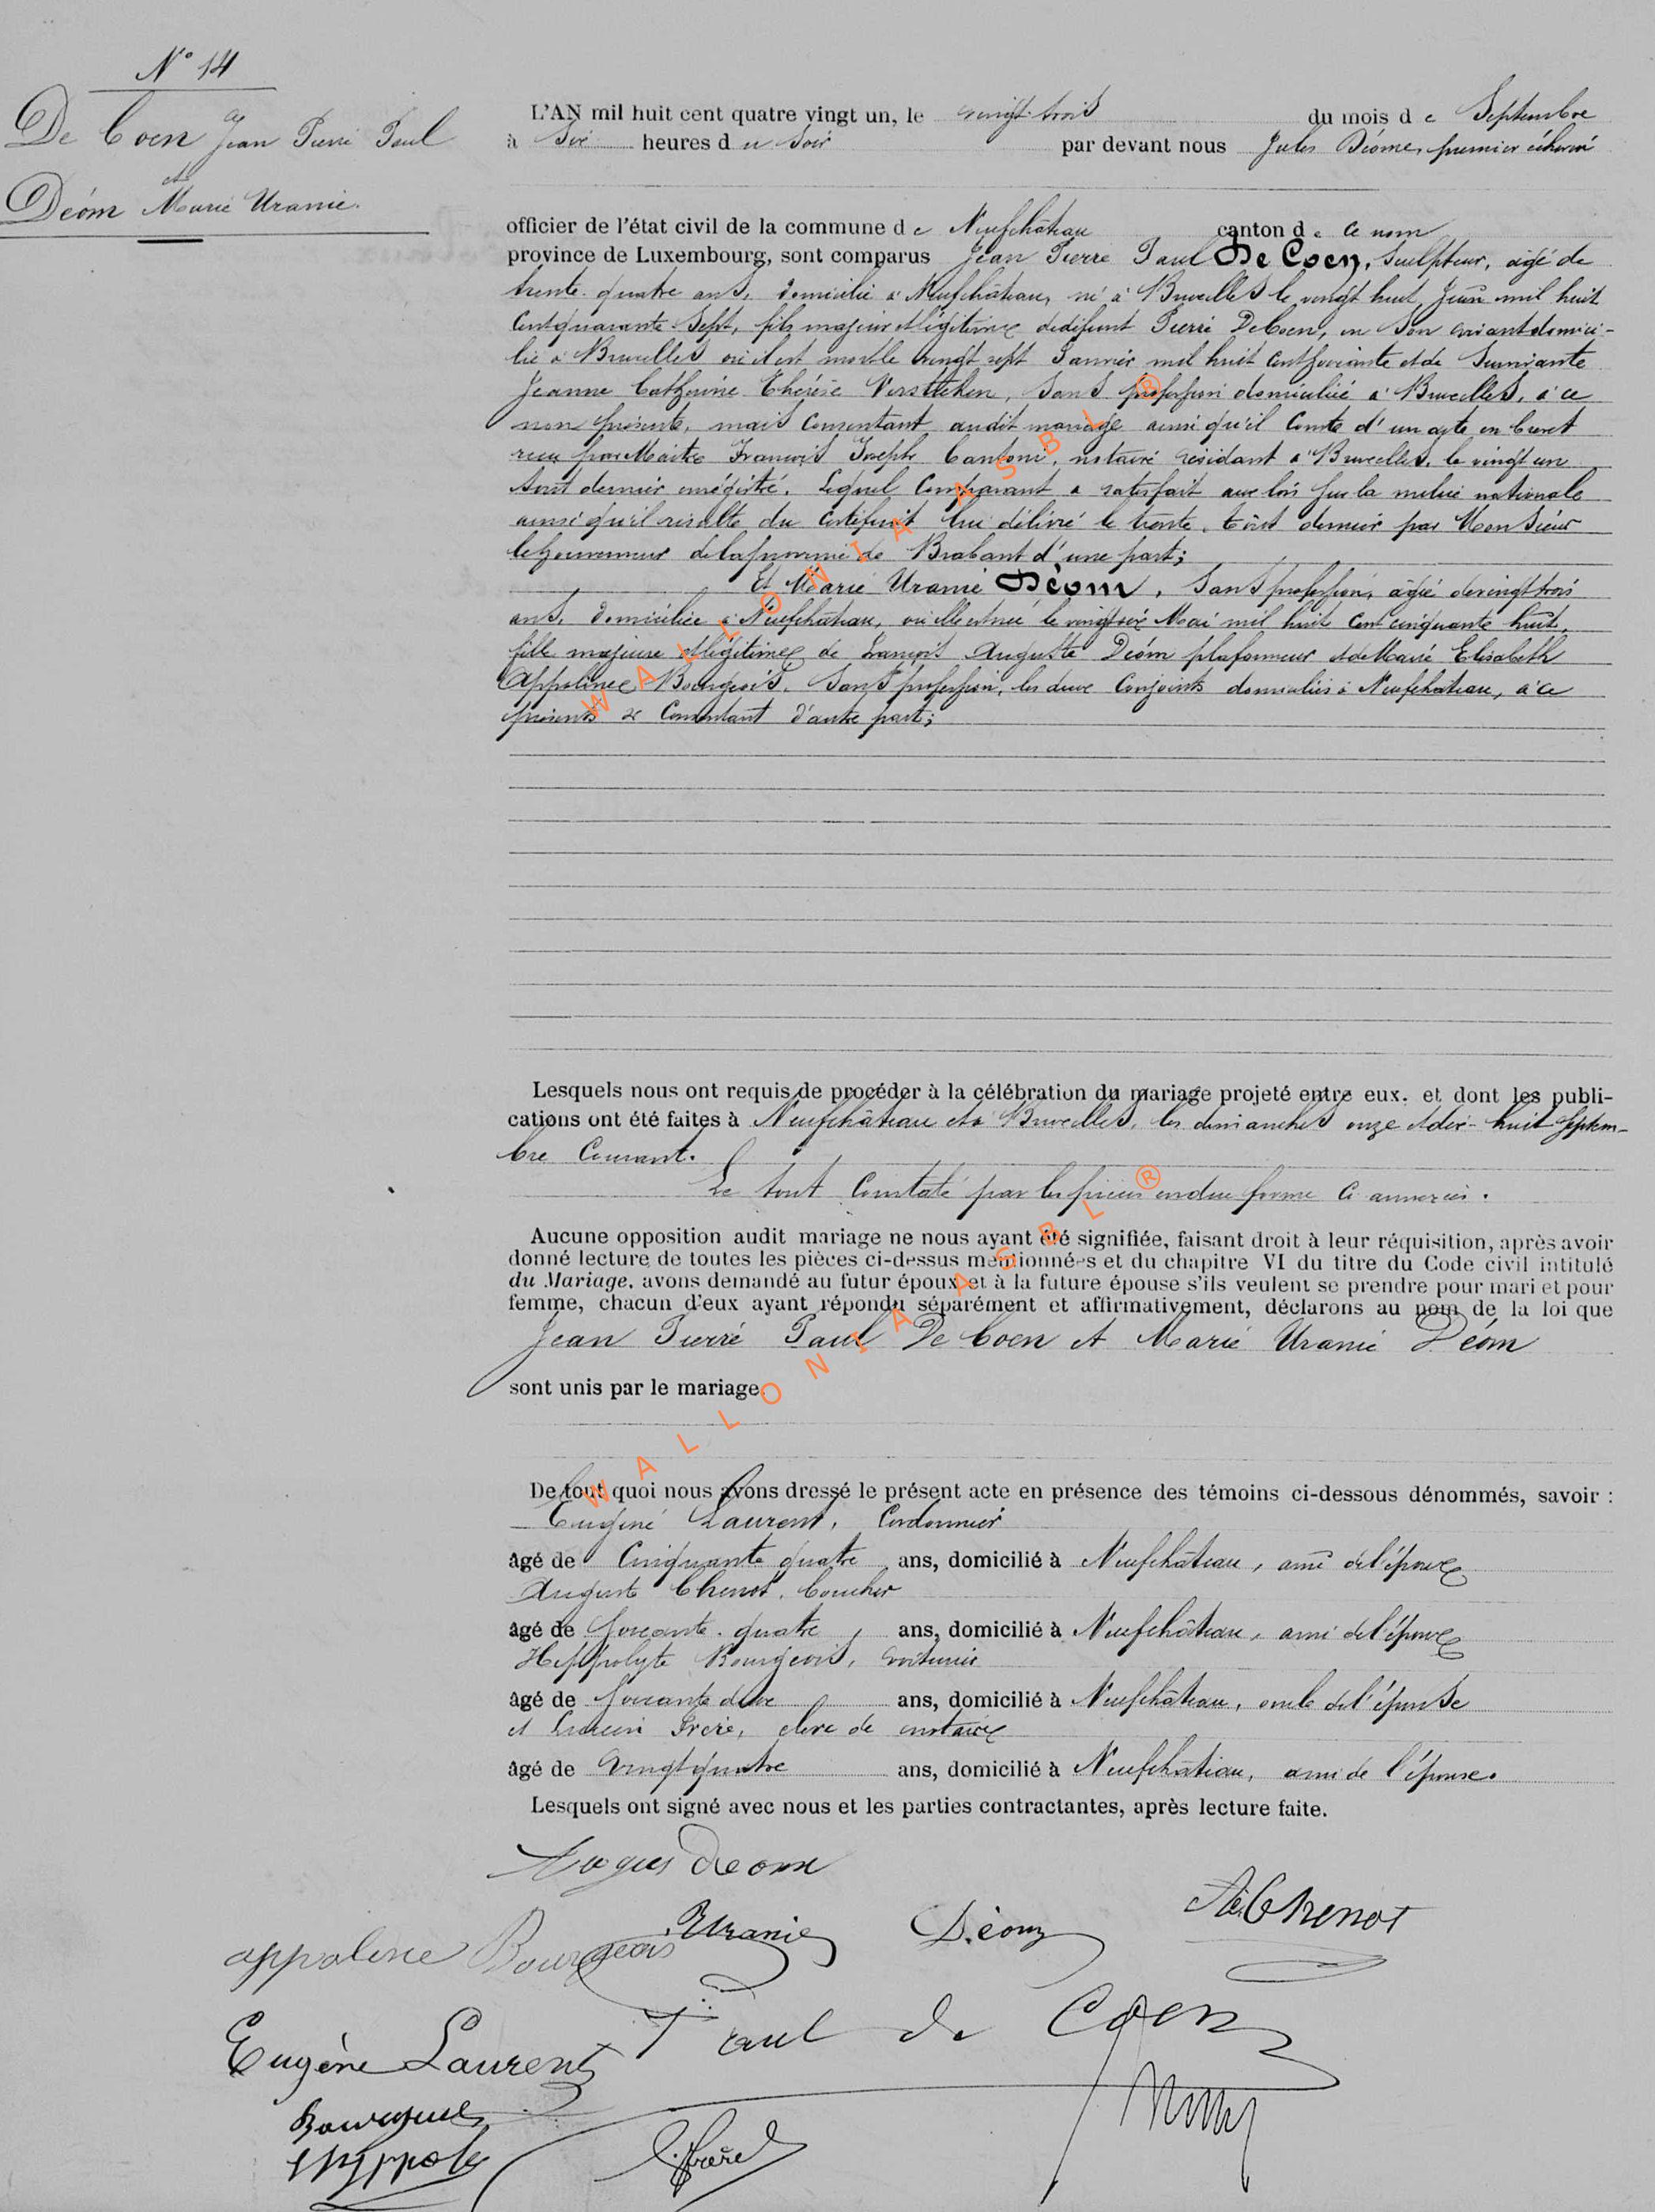 N° 14
De Coen Jean Pierre Paul
et
Déom Marie Uranie.
L'AN mil huit cent quatre vingt un, le vingt-trois du mois de Septembre
à Six heures du Soir par devant nous Jules premier échevin
officier de l'état civil de la commune de Neufchâteau canton de ce nom
province de Luxembourg, sont comparus Jean Pierre Paul De Coen, Sculpteur, âgé de
trente-quatre ans, domicilié à Neufchâteau, né à Bruxelles le vingt huit Juin mil huit
cent quarante-Sept, fils majeur et légitime de défunt Pierre De Coen, en Son vivant domici-
lié à Bruxelles où il est mort le vingt sept Janvier mil huit cent soixante et de Survivante
Jeanne Catherine Thérèse, Sans profession domiciliée à Bruxelles, à ce
non présente, mais Consentant audit mariage ainsi qu'il Conste d'un acte en brevet
reçu par Maître François Joseph Cantoni, notaire résidant à Bruxelles, le vingt un
Août dernier enrégistré. Lequel Comparant a satisfait aux lois sur la milice nationale
ainsi qu'il résulte du Certificat lui délivré le trente Août dernier par Monsieur
le Gouverneur de la province de Brabant d'une part;
Et Marie Uranie Déom, Sans profession, âgée de vingt trois
ans, domiciliée à Neufchâteau, où elle est née le vingt six Mai mil huit Cent cinquante huit,
fille majeure et légitime de François Auguste Déom plafonneur et de Marie Elisabeth
Appoline Bourgeois, Sans profession, les deux Conjoints domiciliés à Neufchâteau, à ce
présents & Consentant d'autre part;
Lesquels nous ont requis de procéder à la célébration du mariage projeté entre eux. et dont les publi-
cations ont été faites à Neufchâteau et à Bruxelles, les dimanches onze et dix-huit Septem-
bre Courant.
Le tout Constaté par les pièces en due forme Ci annexées.
Aucune opposition audit mariage ne nous ayant été signifiée, faisant droit à leur réquisition, après avoir
donné lecture de toutes les pièces ci-dessus mentionnées et du chapitre VI du titre du Code civil intitulé
du Mariage, avons demandé au futur époux et à la future épouse s'ils veulent se prendre pour mari et pour
femme, chacun d'eux ayant répondu séparément et affirmativement, déclarons au nom de la loi que
Jean Pierre Paul De Coen et Marie Uranie Déom
sont unis par le mariage.
De tout quoi nous avons dressé le présent acte en présence des témoins ci-dessous dénommés, savoir :
Eugène Laurent, Cordonnier
âgé de Cinquante quatre ans, domicilié à Neufchâteau, ami de l'époux
Auguste Chenot, boucher
âgé de soixante-quatre ans, domicilié à Neufchâteau, ami de l'époux
Hippolyte Bourgeois, voiturier
âgé de soixante deux ans, domicilié à Neufchâteau, oncle de l'épouse
et, clerc de notaire
âgé de Vingt quatre ans, domicilié à Neufchâteau, ami de l'épouse.
Lesquels ont signé avec nous et les parties contractantes, après lecture faite.
Déom
Uranie Déom
A. Chenot
appoline Bourgeois
Paul de Coen
Eugène Laurent
WALLONIA ASBL ®
WALLONIA ASBL ®